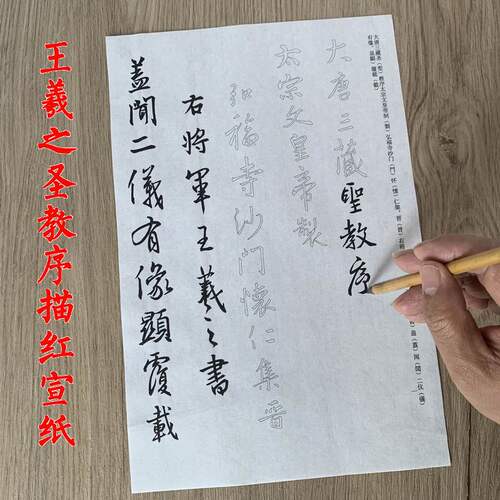 王羲之圣教序描红宣纸
大唐三藏聖教序
太宗文皇帝製
弘福寺沙门懷仁集晉
右將軍王羲之書
盖聞二儀有像顯覆載